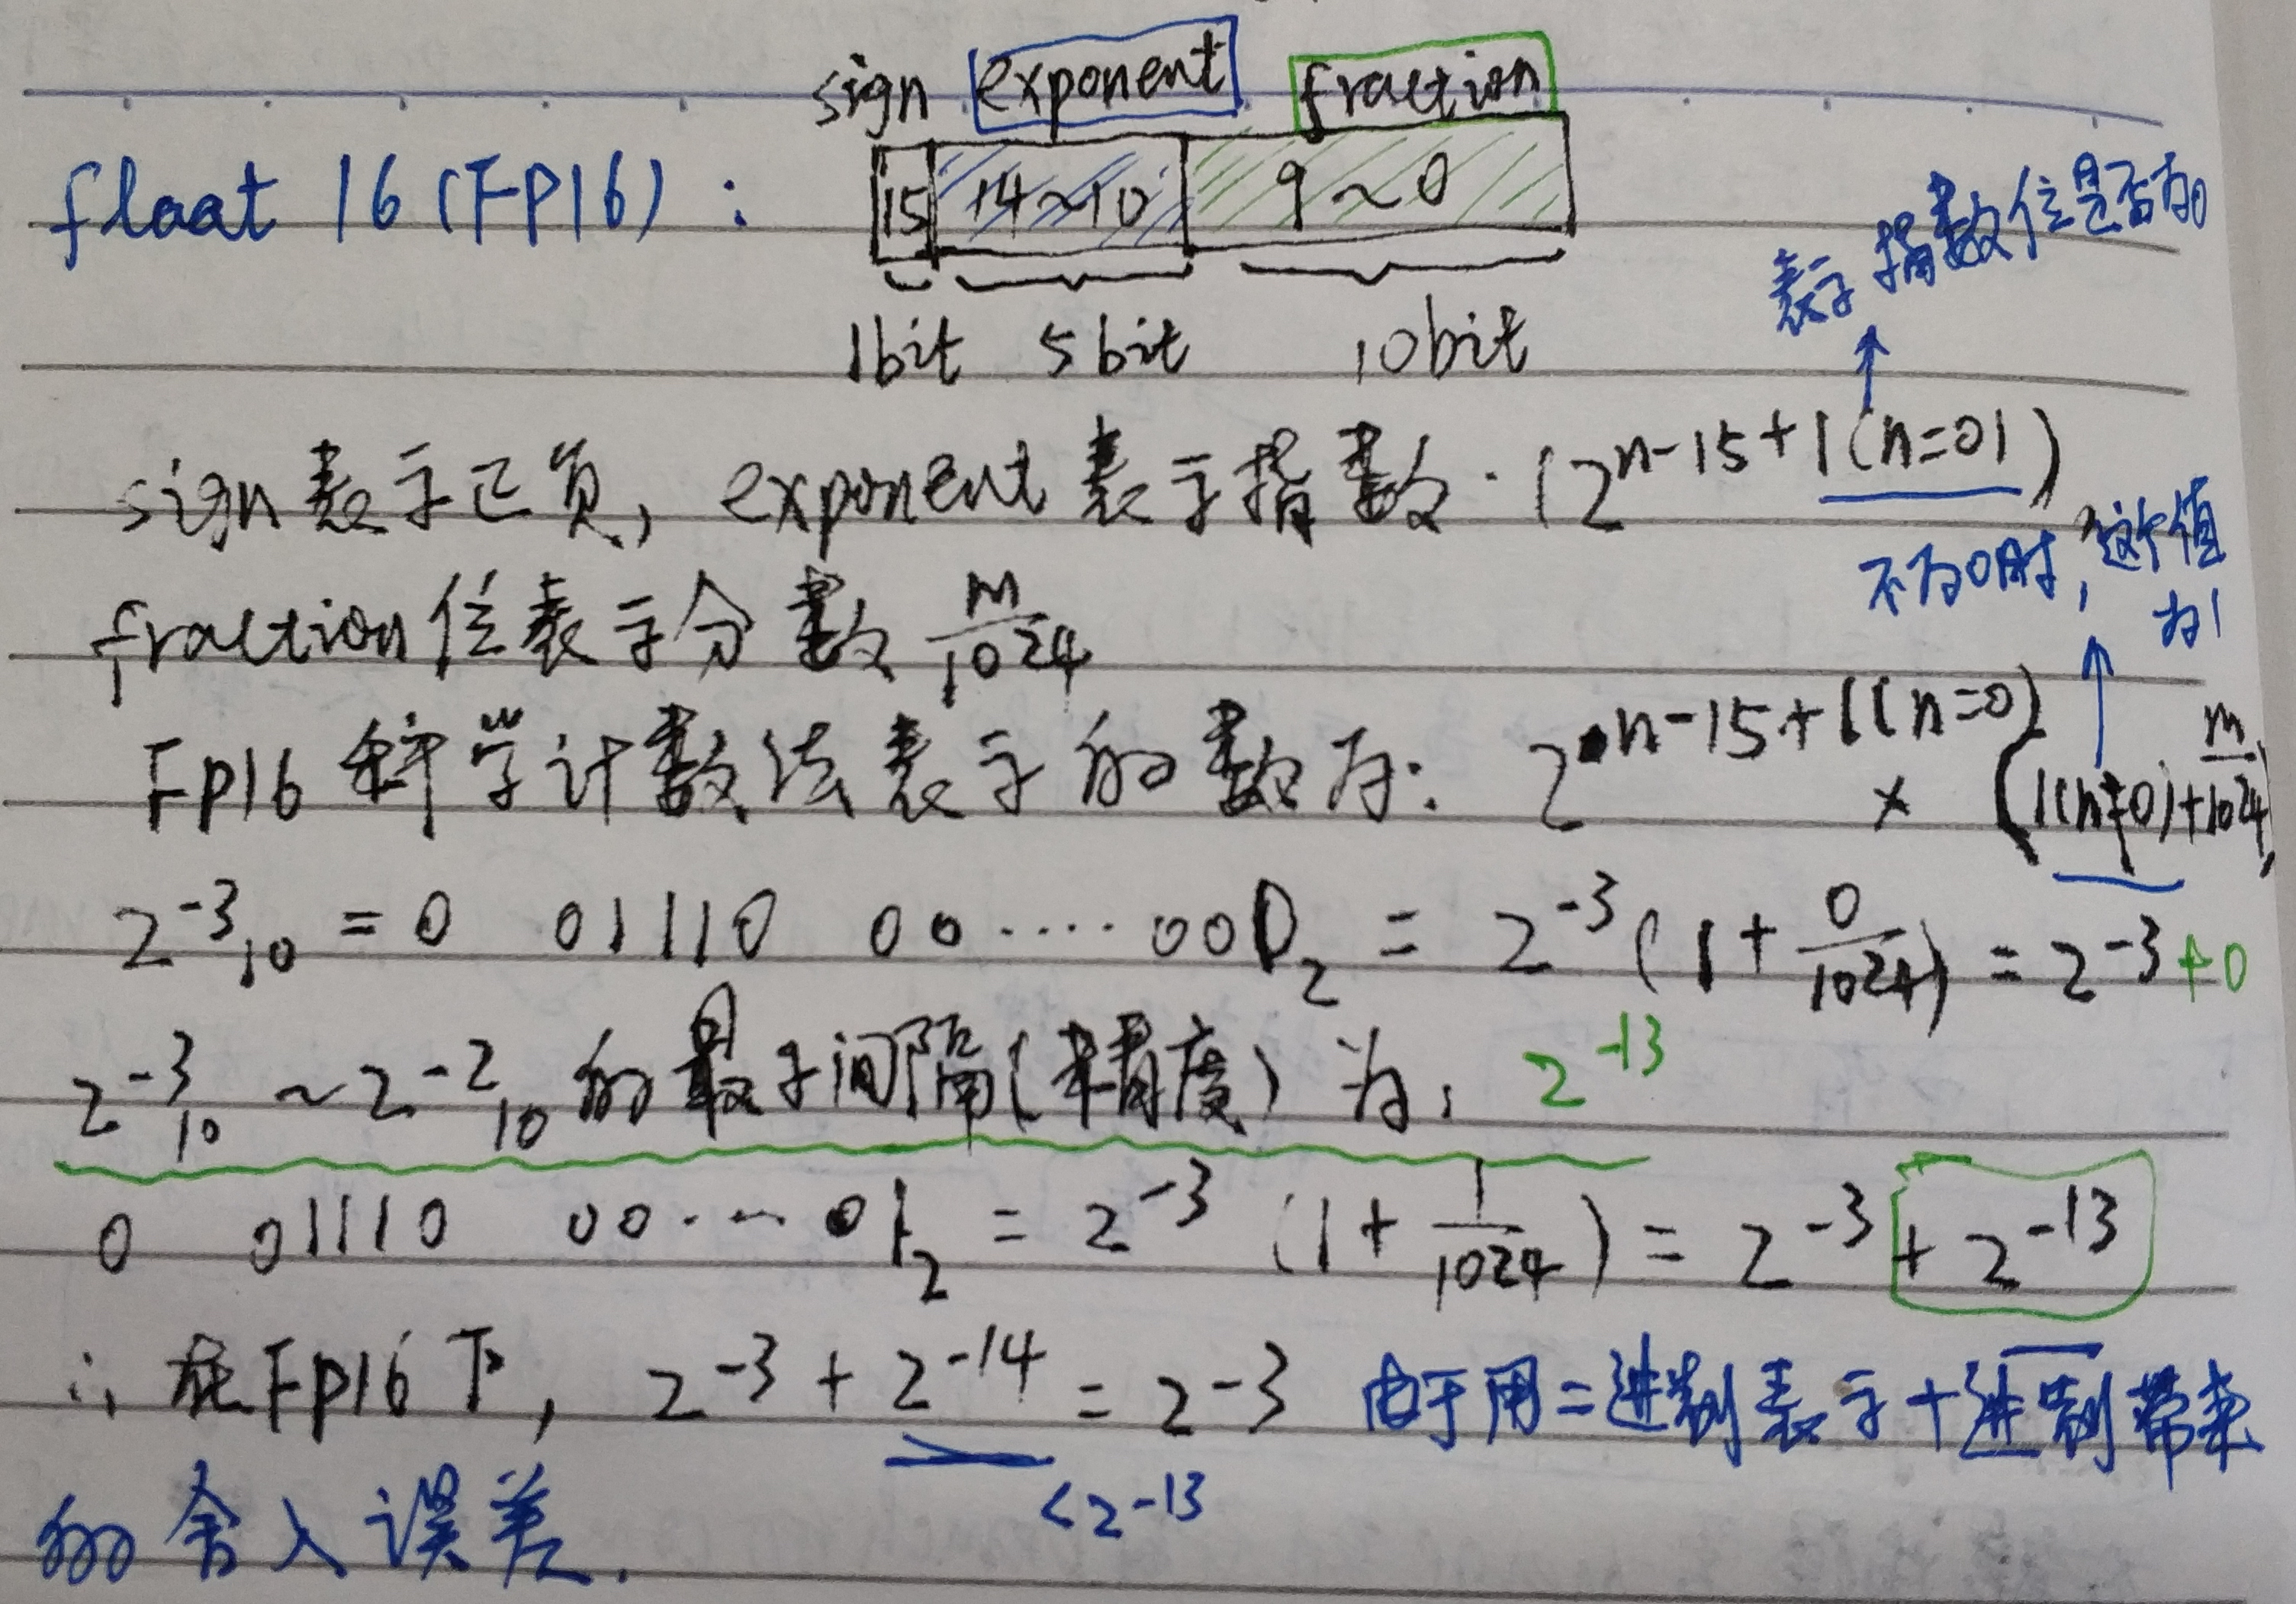 sign exponent fraction
float 16 (FP16) : 15 14~10 9~0
表示指数位是否为0
1bit 5bit 10bit
sign表示正负, exponent表示指数. (2^{n-15+1(n=0)})
不为0时, 这个值为1
fraction位表示分数 \frac{m}{1024}
FP16科学计数法表示的数为: 2^{n-15+1(n=0)} × (1(n≠0)+\frac{m}{1024})
2^{-3}_{10} = 0 01110 00····000_2 = 2^{-3} (1+\frac{0}{1024}) = 2^{-3}+0
2^{-3}_{10} ~ 2^{-2}_{10} 的最小间隔(精度) 为: 2^{-13}
0 01110 00····01_2 = 2^{-3} (1+\frac{1}{1024}) = 2^{-3}+2^{-13}
∴ 在FP16下, 2^{-3} + 2^{-14} = 2^{-3} 由于用二进制表示十进制带来
<2^{-13}
的舍入误差.